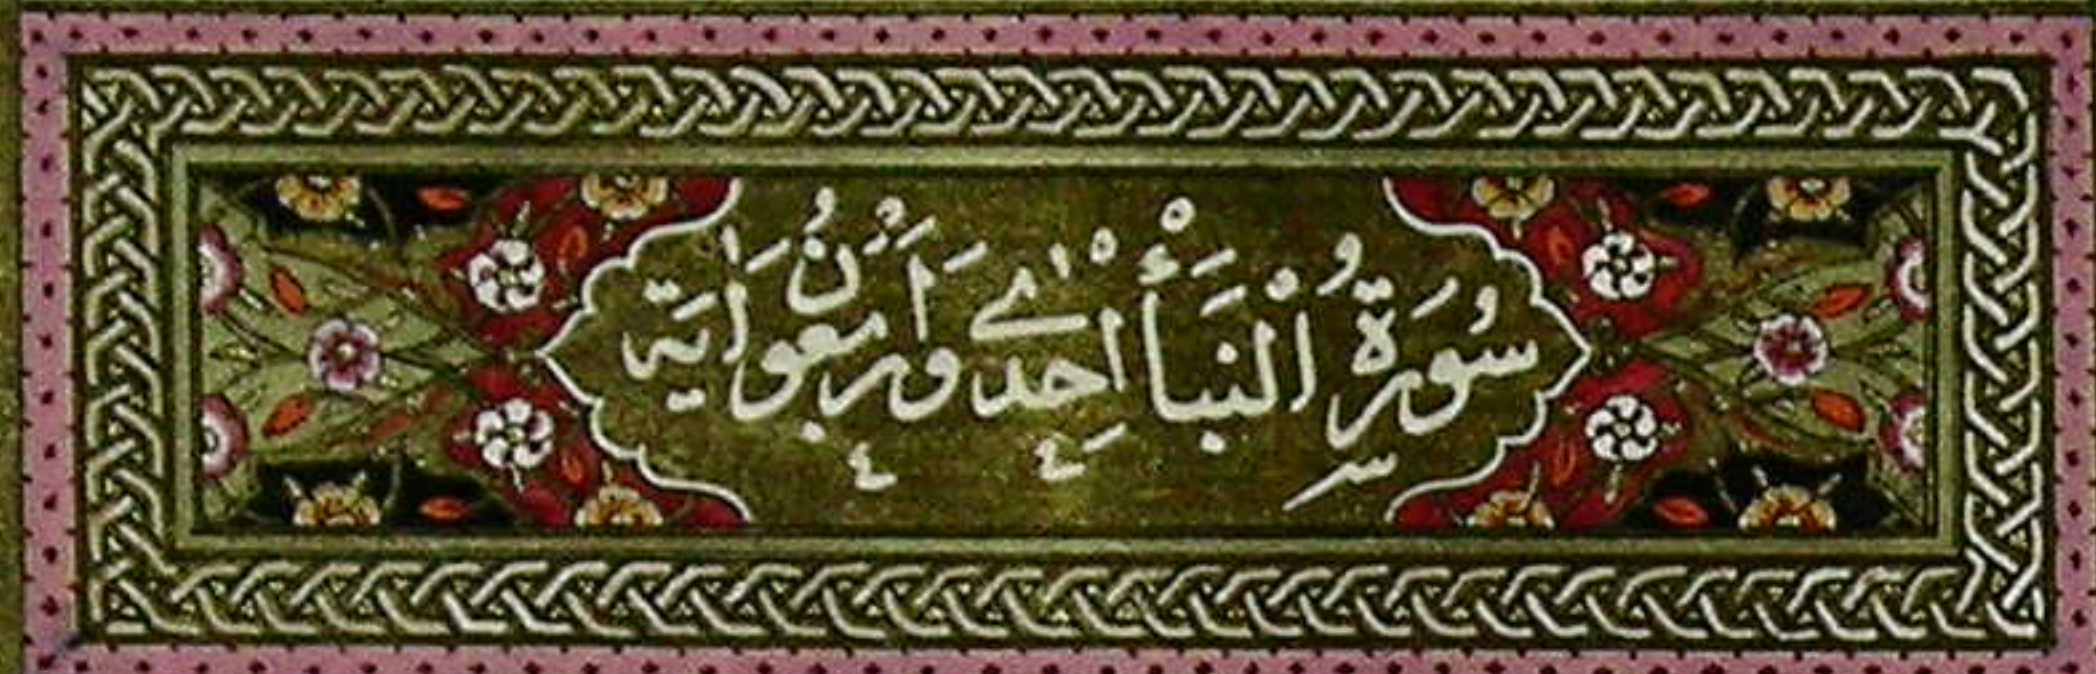 سُورَةُ النَّبَأْ اِحْدٰى وَاَرْبَعُونَ اٰيَة